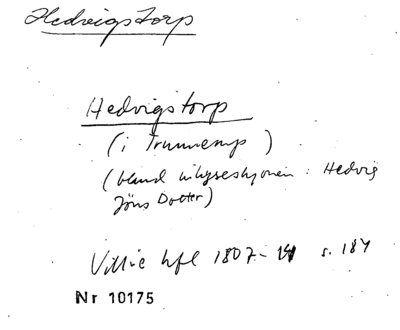 Hedvigstorp
Hedvigstorp
(i Trunnerup)
(bland inhyseshjonen: Hedvig
Jöns Dotter)
Villie hfl 1807- s. 184
Nr 10175